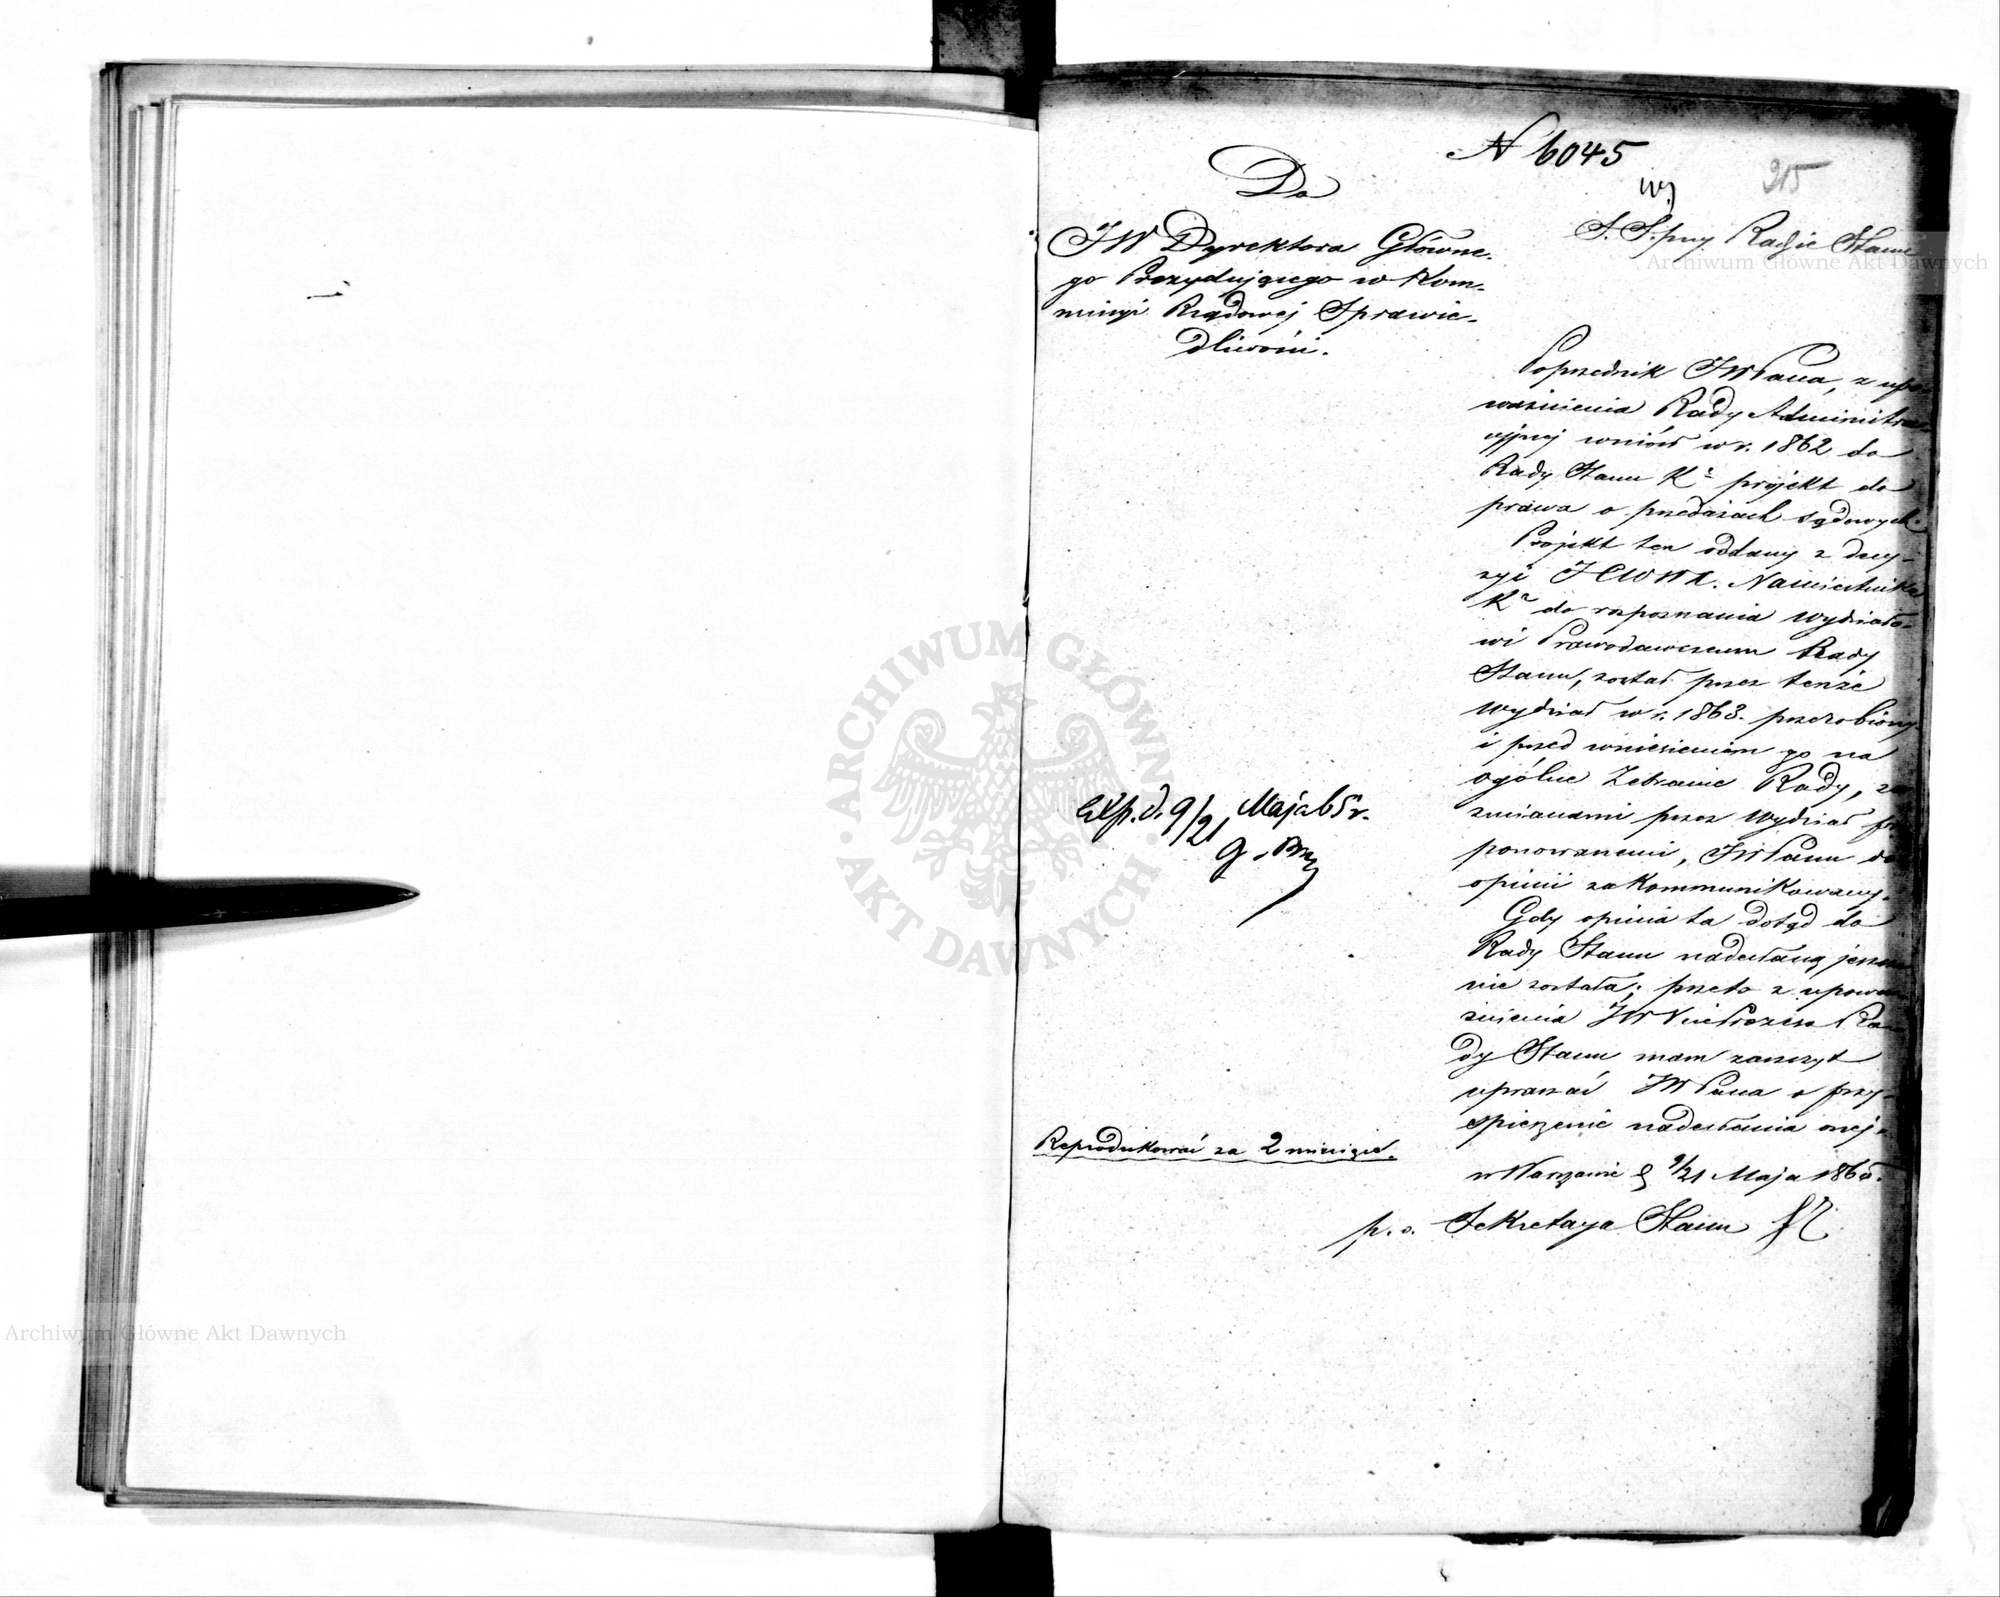 N 6045
215
Do
JW Dyrektora Główne-
go Prezydującego w Kom-
missyi Rządowej Sprawie-
dliwości.
S. S. przy Radzie Stanu
Poprzednik JWPana, z upo-
ważnienia Rady Administra-
cyjnej wniósł w r. 1862 do
Rady Stanu Kr projekt do
prawa o przedażach sądowych.
Projekt ten oddany z decy-
zyi JCWW X. Namiestnika
Kr do rozpoznania Wydziało-
wi Prawodawczemu Rady
Stanu, został przez tenże
Wydział w r. 1863. przerobiony
i przed wniesieniem go na
ogólne Zebranie Rady, ze
zmianami przez Wydział pro-
ponowanemi, JWPanu do
opinii zakommunikowany.
Gdy opinia ta dotąd do
Rady Stanu nadesłaną jeszcze
nie została; przeto z upowa-
żnienia JW VicePrezesa Ra-
dy Stanu mam zaszczyt
upraszać JWPana o przy-
spieszenie nadesłania onej.
w Warszawie d 9/21 Maja 1865.
p. o. Sekretarza Stanu
exp. d. 9/21 Maja 65 r.
Reprodukować za 2 miesiące.
ARCHIWUM GŁÓWNE AKT DAWNYCH
Archiwum Główne Akt Dawnych
Archiwum Główne Akt Dawnych